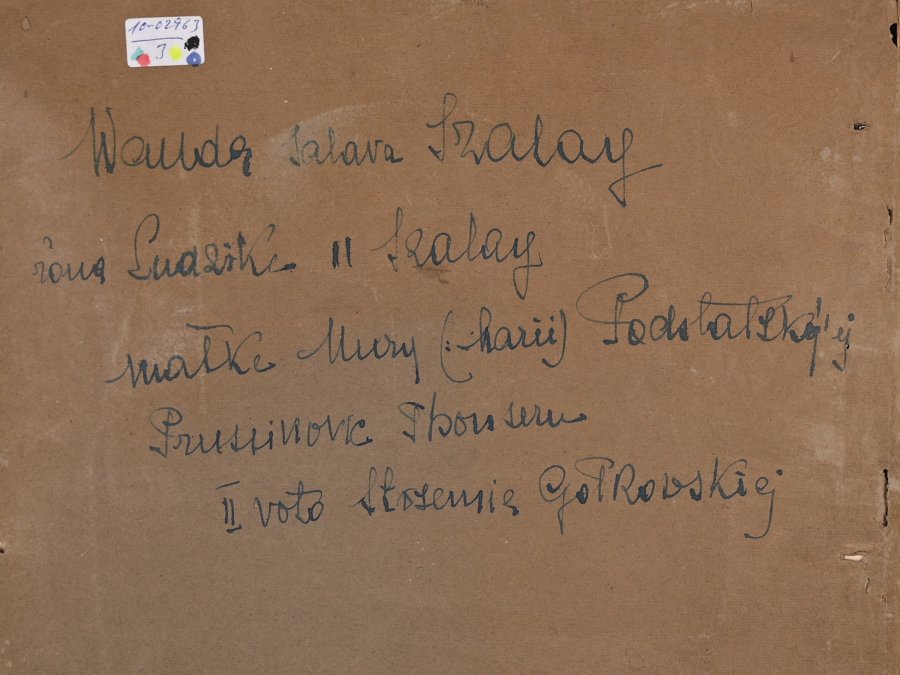 10-02963
3
Wanda Salava Szalay
żona Ludzika II Szalay
matka Mury (:Marii) Podstatskýej
Prussinovic Thonsern
II voto Strzemię Gołkovskiej